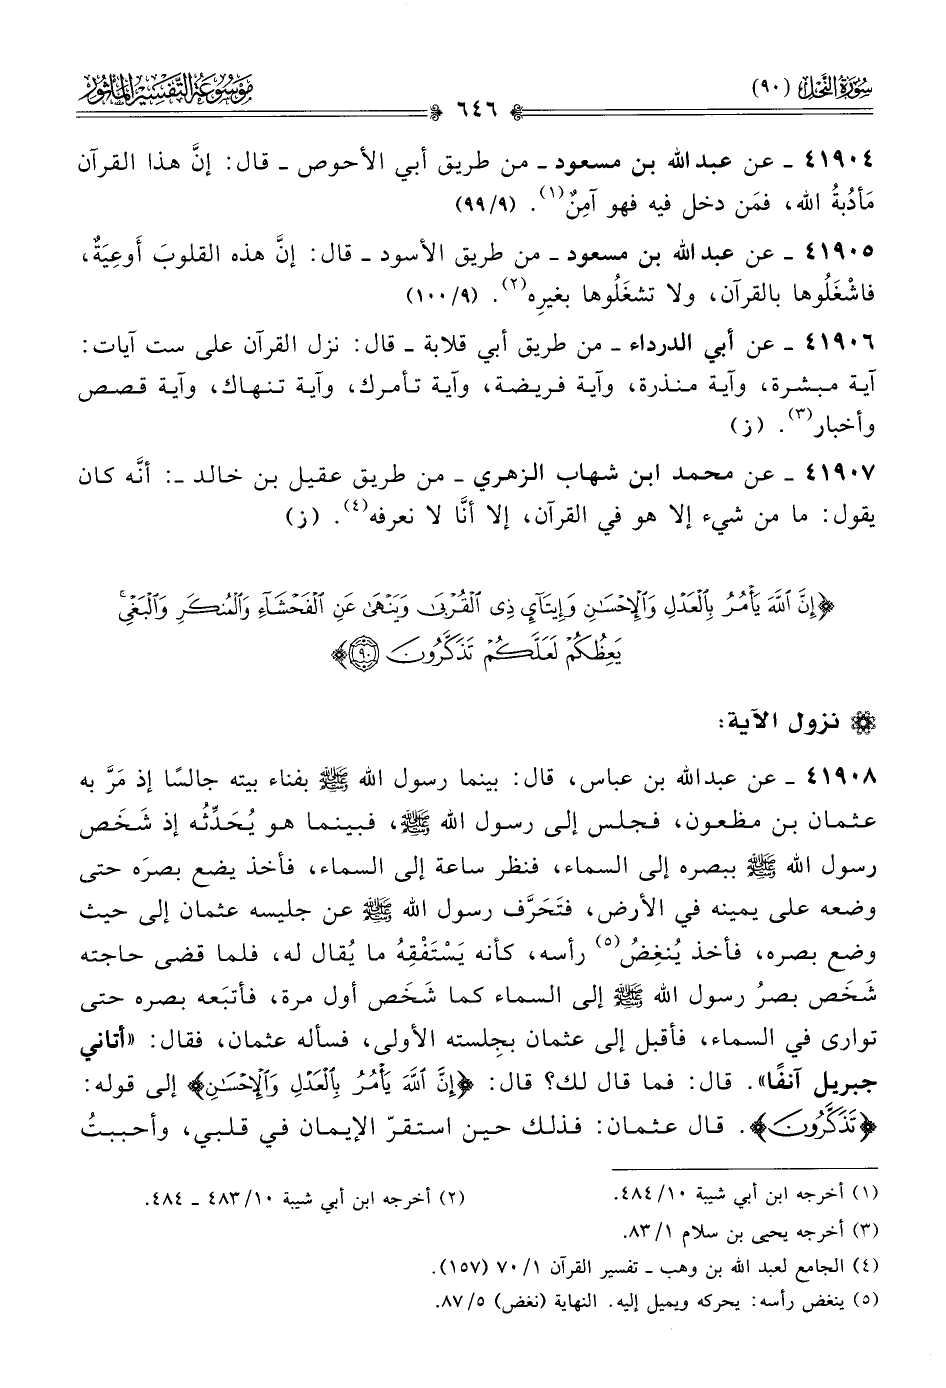 سُورَةُ النَّحْلِ (٩٠)
٦٤٦
مَوْسُوعَةُ التَّفْسِيرِ المَأْثُورِ
٤١٩٠٤ ـ عن عبد الله بن مسعود ـ من طريق أبي الأحوص ـ قال: إنَّ هذا القرآن
مَأدُبةُ الله، فمَن دخل فيه فهو آمِنٌ(١). (٩٩/٩)
٤١٩٠٥ ـ عن عبدالله بن مسعود ـ من طريق الأسود ـ قال: إنَّ هذه القلوبَ أَوعِيَةٌ،
فاشْغَلُوها بالقرآن، ولا تشغَلُوها بغيرِه(٢). (١٠٠/٩)
٤١٩٠٦ ـ عن أبي الدرداء ـ من طريق أبي قلابة ـ قال: نزل القرآن على ست آيات:
آية مبشرة، وآية منذرة، وآية فريضة، وآية تأمرك، وآية تنهاك، وآية قصص
وأخبار(٣). (ز)
٤١٩٠٧ ـ عن محمد ابن شهاب الزهري ـ من طريق عقيل بن خالد ـ: أنَّه كان
يقول: ما من شيء إلا هو في القرآن، إلا أنَّا لا نعرفه(٤). (ز)
﴿إِنَّ ٱللَّهَ يَأْمُرُ بِٱلْعَدْلِ وَٱلْإِحْسَٰنِ وَإِيتَآيِٕ ذِى ٱلْقُرْبَىٰ وَيَنْهَىٰ عَنِ ٱلْفَحْشَآءِ وَٱلْمُنكَرِ وَٱلْبَغْىِ ۚ
يَعِظُكُمْ لَعَلَّكُمْ تَذَكَّرُونَ ۝٩٠﴾
نزول الآية:
٤١٩٠٨ ـ عن عبدالله بن عباس، قال: بينما رسول الله ﷺ بفناء بيته جالسًا إذ مَرَّ به
عثمان بن مظعون، فجلس إلى رسول الله ﷺ، فبينما هو يُحَدِّثُه إذ شَخَص
رسول الله ﷺ ببصره إلى السماء، فنظر ساعة إلى السماء، فأخذ يضع بصرَه حتى
وضعه على يمينه في الأرض، فتَحَرَّف رسول الله ﷺ عن جليسه عثمان إلى حيث
وضع بصره، فأخذ يُنغِضُ(٥) رأسه، كأنه يَسْتَفْقِهُ ما يُقال له، فلما قضى حاجته
شَخَص بصرُ رسول الله ﷺ إلى السماء كما شَخَص أول مرة، فأتبَعه بصره حتى
توارى في السماء، فأقبل إلى عثمان بجِلسته الأولى، فسأله عثمان، فقال: «أتاني
جبريل آنفًا». قال: فما قال لك؟ قال: ﴿إِنَّ ٱللَّهَ يَأْمُرُ بِٱلْعَدْلِ وَٱلْإِحْسَٰنِ﴾ إلى قوله:
﴿تَذَكَّرُونَ﴾. قال عثمان: فذلك حين استقرّ الإيمان في قلبي، وأحببتُ
(١) أخرجه ابن أبي شيبة ٤٨٤/١٠.
(٢) أخرجه ابن أبي شيبة ٤٨٣/١٠ ـ ٤٨٤.
(٣) أخرجه يحيى بن سلام ٨٣/١.
(٤) الجامع لعبد الله بن وهب ـ تفسير القرآن ٧٠/١ (١٥٧).
(٥) ينغض رأسه: يحركه ويميل إليه. النهاية (نغض) ٨٧/٥.